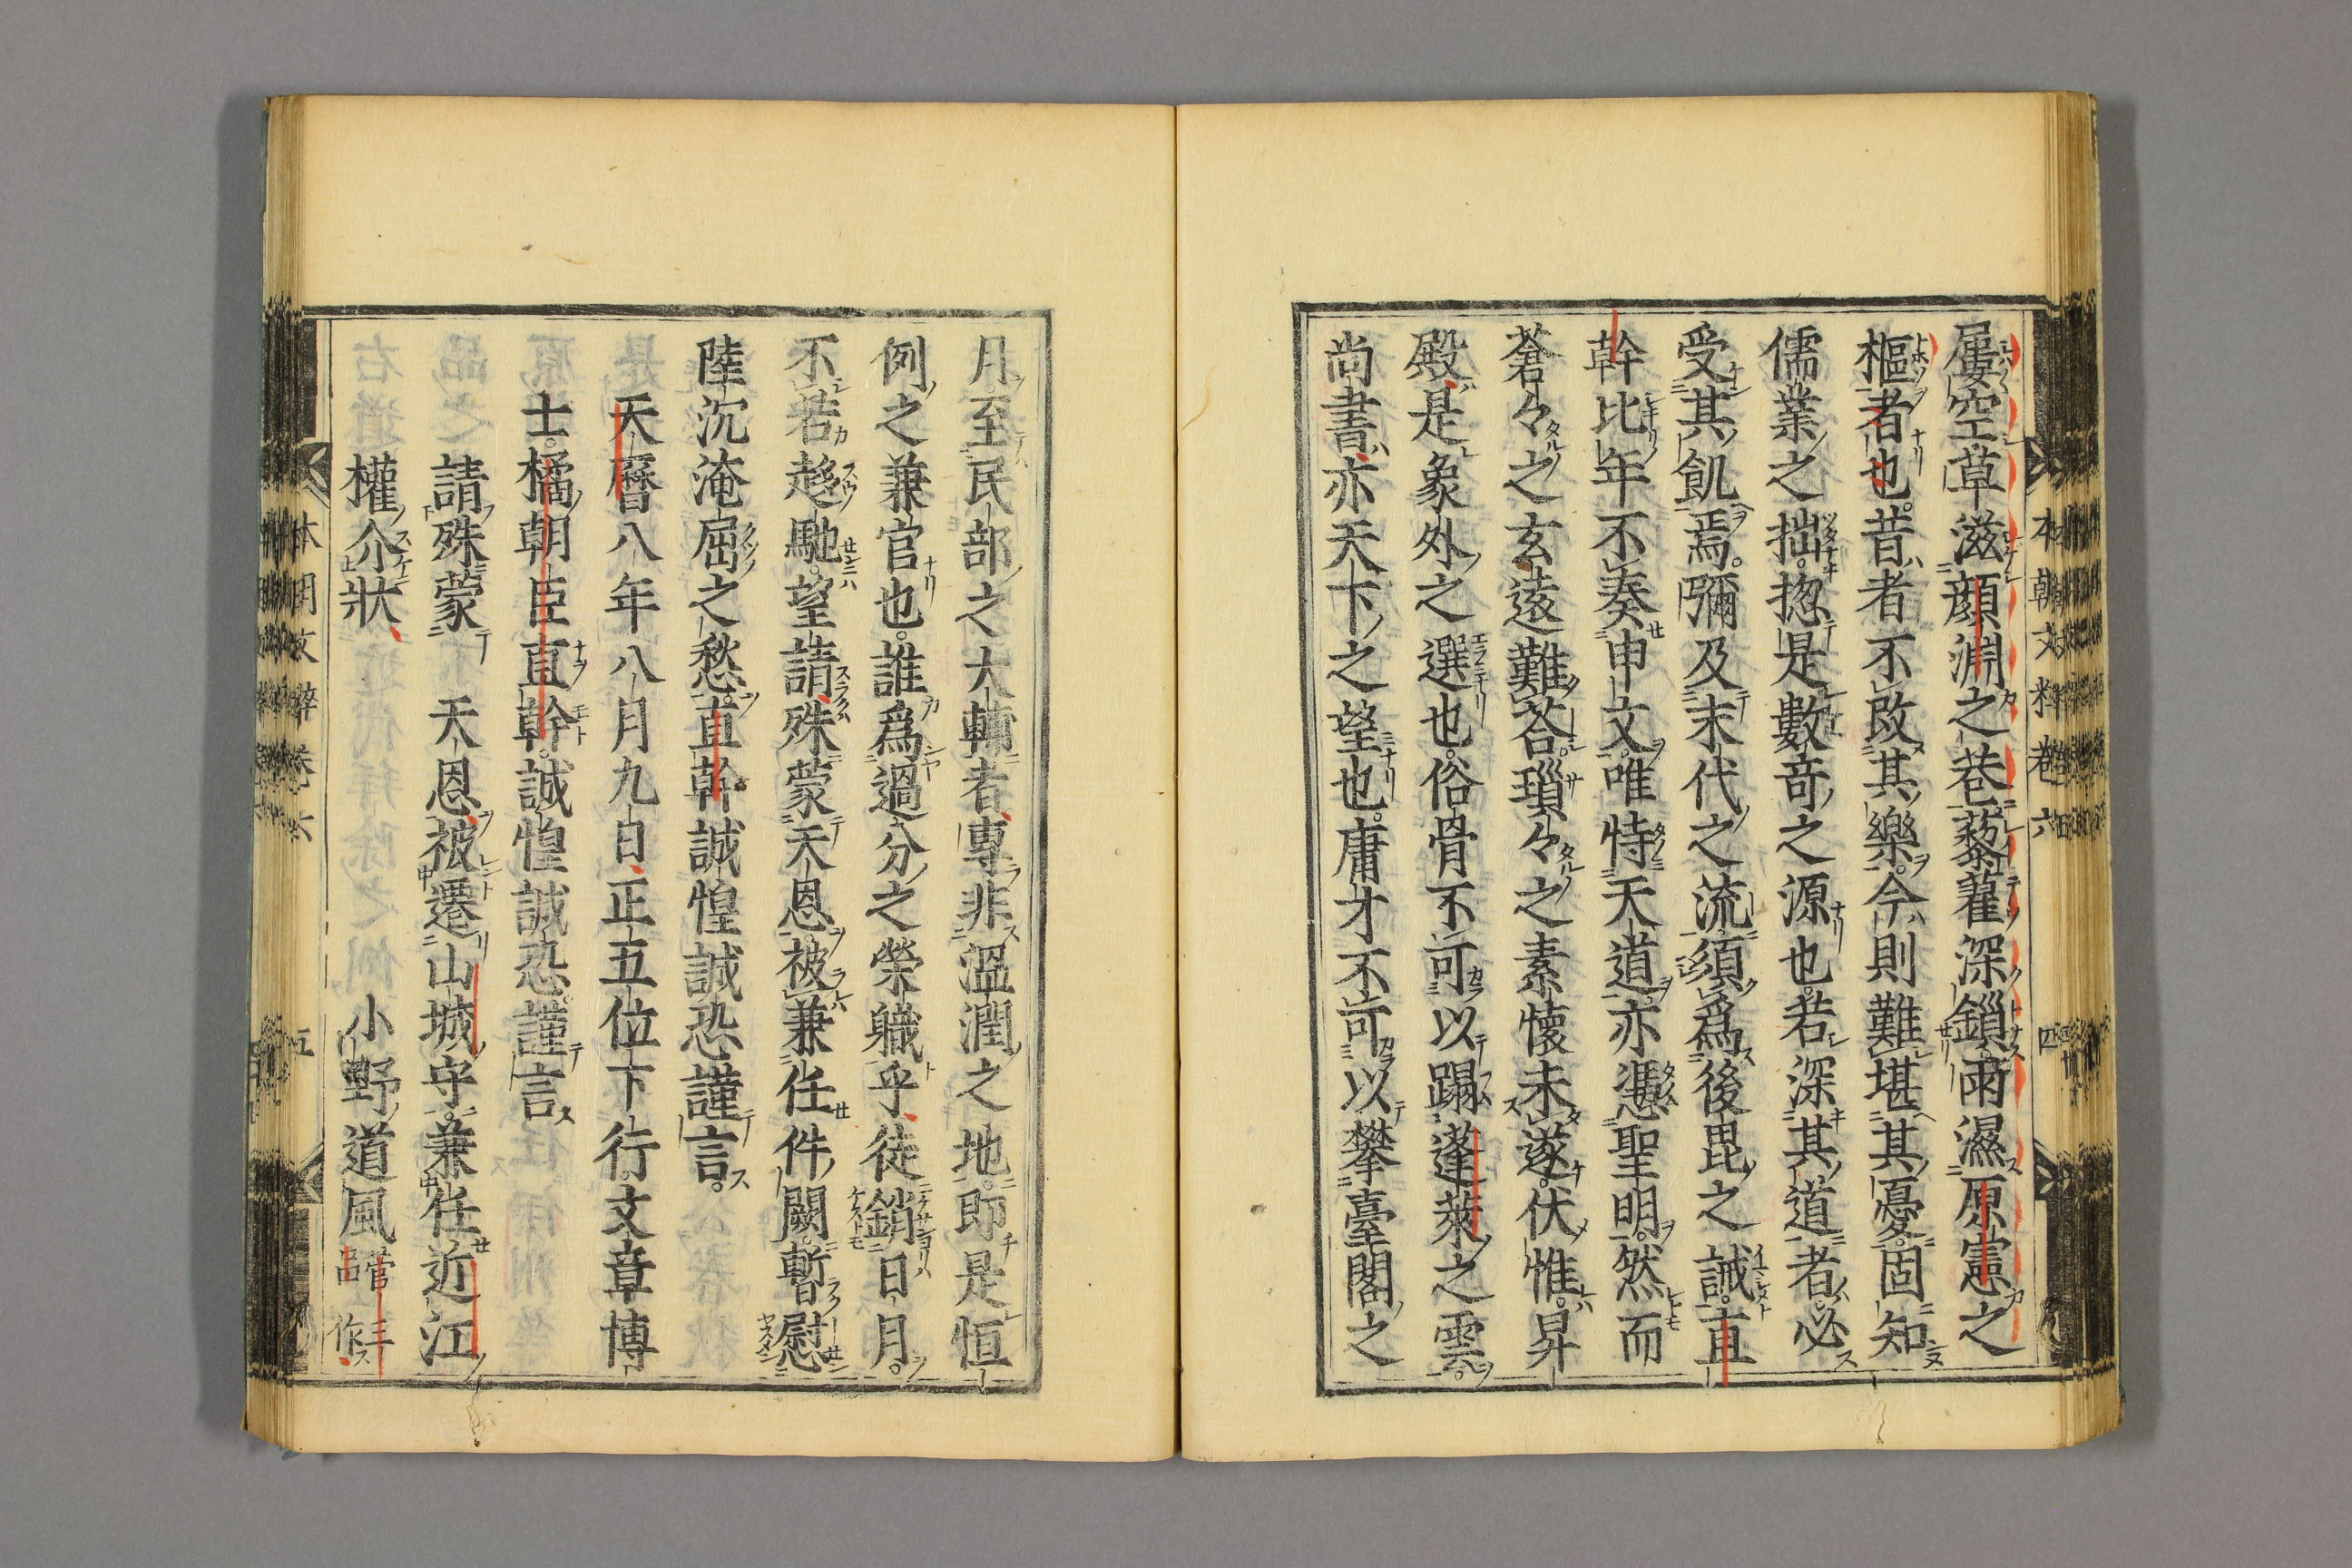 屢空草滋顔淵之巷藜藋深鎖雨濕原憲之
樞者也昔者不改其樂今則難堪其憂固知
儒業之拙揔是數奇之源也若深其道者必
受其飢焉彌及末代之流須爲後毘之誡直
幹比年不奏申文唯恃天道亦憑聖明然而
蒼々之玄遠難荅瑣々之素懷未遂伏惟昇
殿是象外之選也俗骨不可以蹋蓬萊之雲
尚書亦天下之望也庸才不可以攀臺閣之
月至民部之大輔者專非溫潤之地即是恒
例之兼官也誰爲過分之榮軄乎徒銷日月
不若趍馳望請殊蒙天恩被兼任件闕暫慰
陸沉淹屈之愁直幹誠惶誠恐謹言
天曆八年八月九日正五位下行文章博
士橘朝臣直幹誠惶誠恐謹言
請殊蒙 天恩被遷山城守兼任近江
權介狀 小野道風 菅三品作
本朝文粹卷六 四
本朝文粹卷六 五